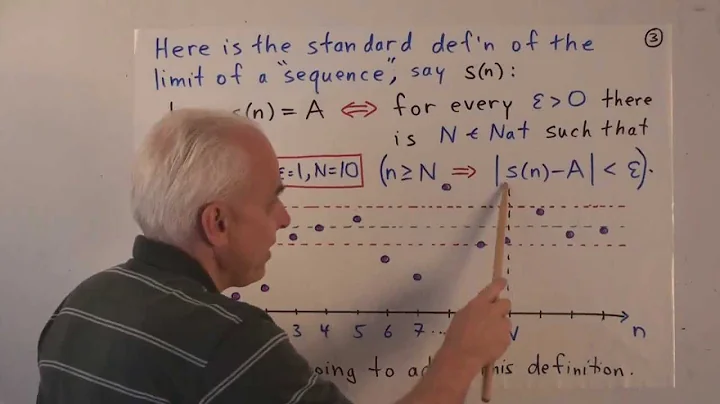 Here is the standard def'n of the
③
limit of a "sequence", say s(n):
s(n) = A ⟺ for every ε>0 there
is N ∈ Nat such that
ε=1, N=10 (n≥N ⟹ |s(n)-A| < ε).
3 4 5 6 7 ... N n
going to this definition.